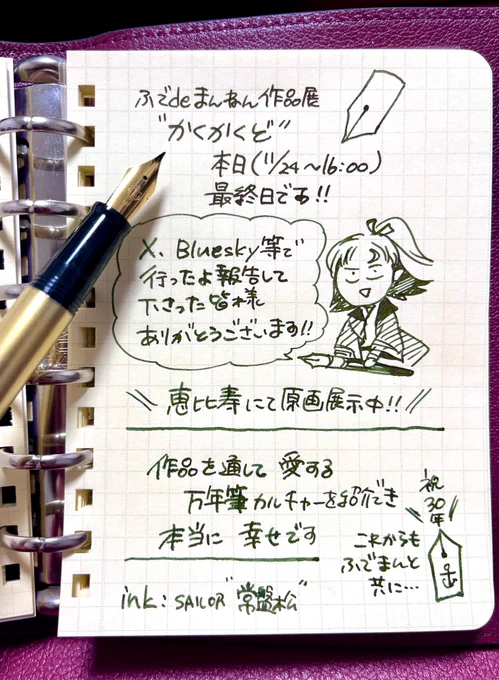 ふでdeまんねん作品展
"かくかくぞ"
本日(11/24～16:00)
最終日です!!
X、Bluesky等で
行ったよ報告して
下さった皆様
ありがとうございます!!
恵比寿にて原画展示中!!
作品を通して 愛する
万年筆カルチャーを紹介でき
本当に 幸せです
祝
30
年
これからも
ふでまんと
共に…
ink: SAILOR "常盤松"